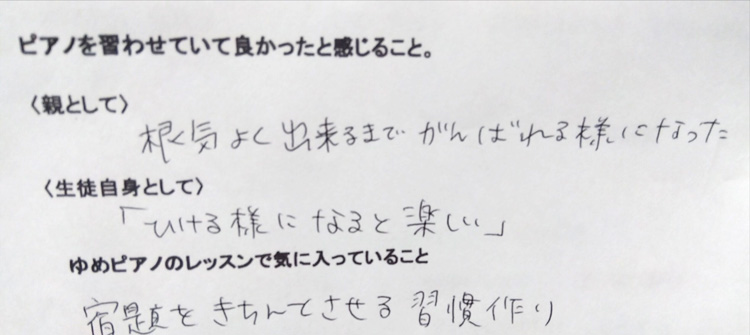 ピアノを習わせていて良かったと感じること。
〈親として〉
根気よく出来るまでがんばれる様になった
〈生徒自身として〉
「ひける様になると楽しい」
ゆめピアノのレッスンで気に入っていること
宿題をきちんとさせる習慣作り